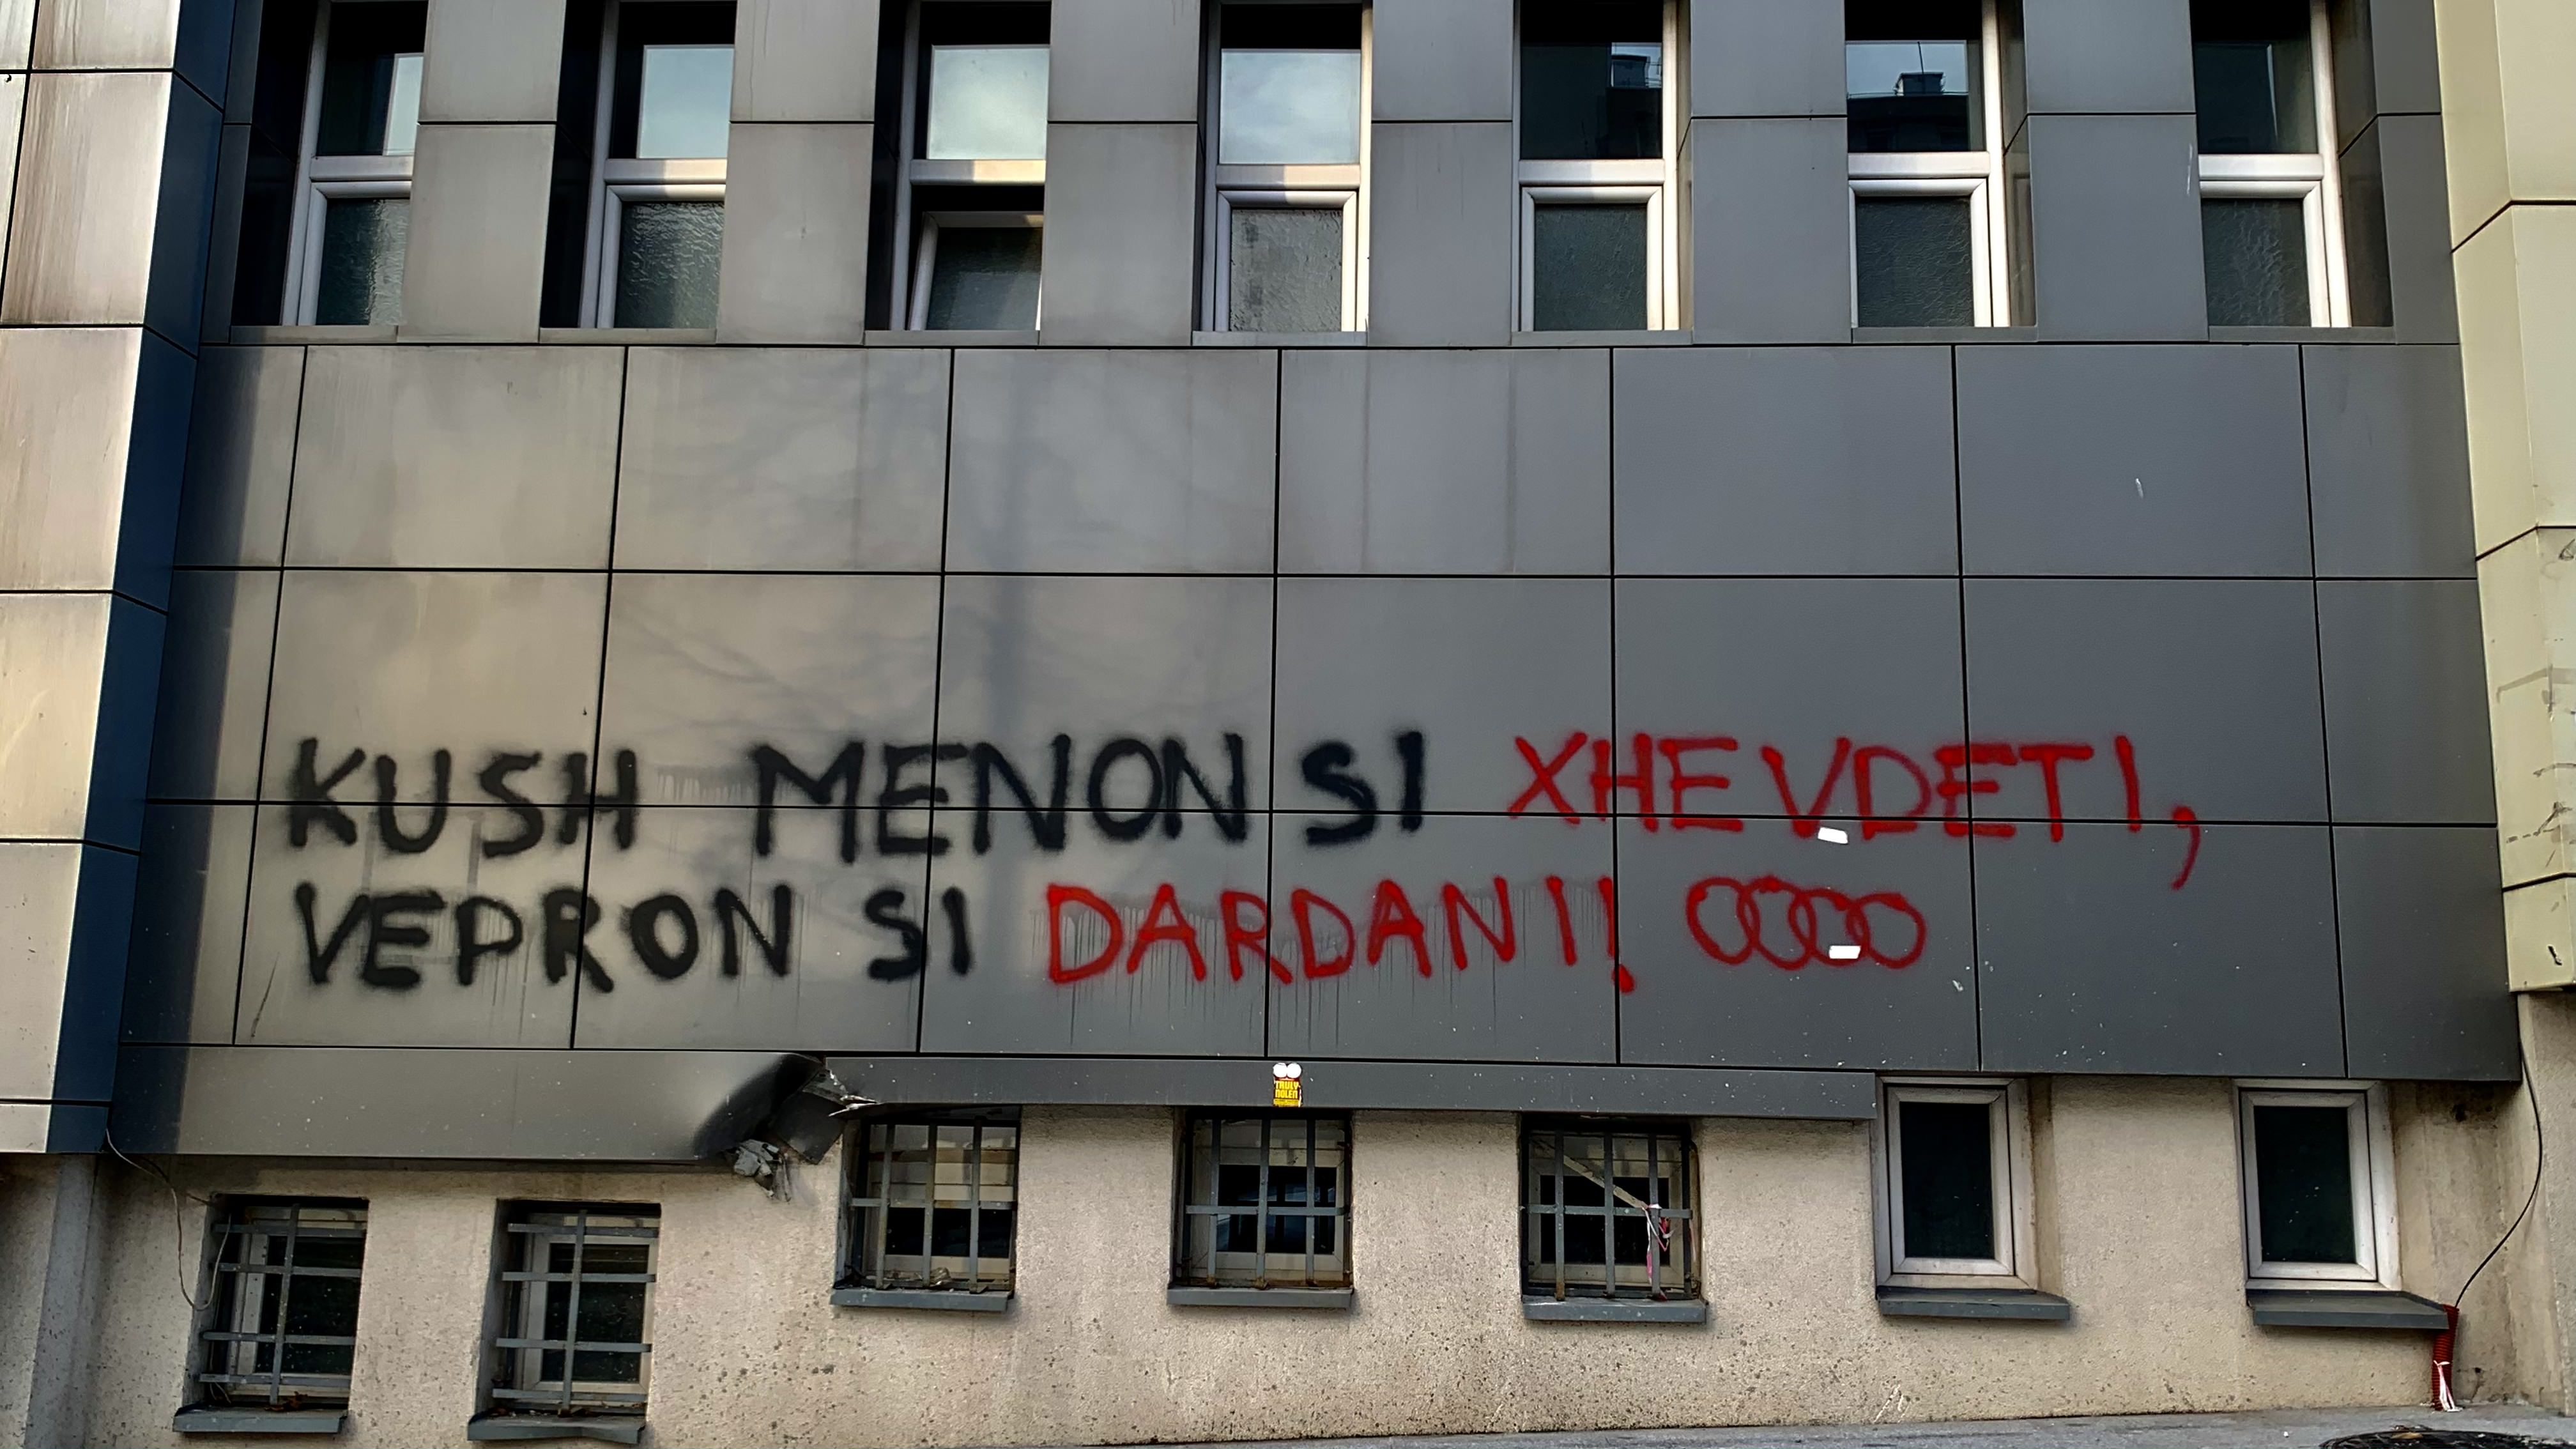 KUSH MENON SI XHEVDETI,
VEPRON SI DARDANI!
TRULY
NOLEN